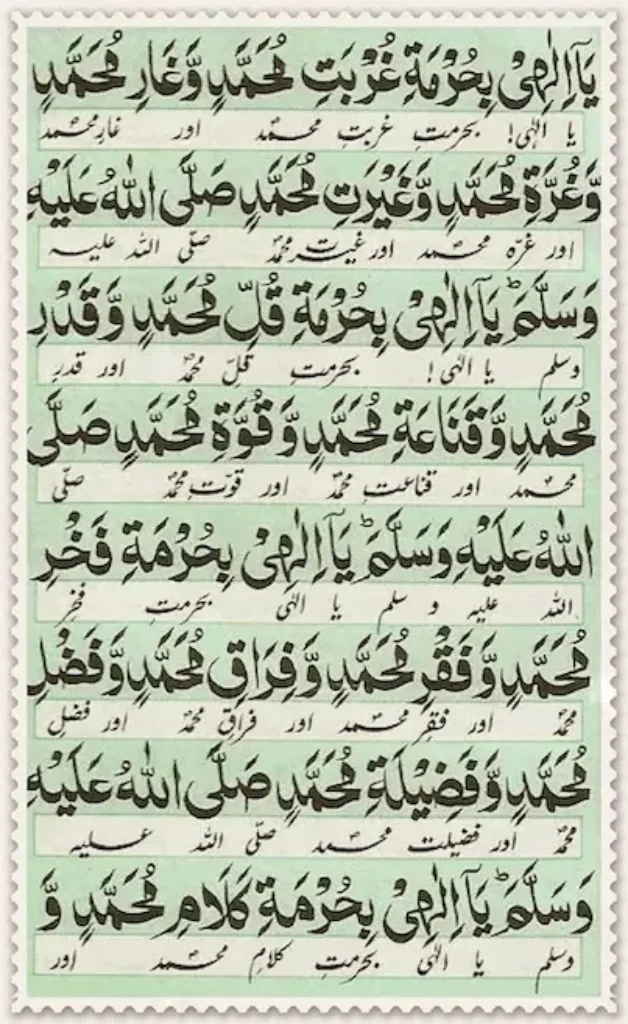 يَآ اِلٰهِيْ بِحُرْمَةِ غُرْبَتِ مُحَمَّدٍ وَّغَارِ مُحَمَّدٍ
یا الٰہی! بحرمتِ غربتِ محمدؐ اور غارِ محمد
وَّغُرَّةِ مُحَمَّدٍ وَّغَيْرَتِ مُحَمَّدٍ صَلَّى اللهُ عَلَيْهِ
اور غرّہ محمد اور غیرت محمدؐ صلّی اللہ علیہ
وَسَلَّمَ ؕ يَآ اِلٰهِيْ بِحُرْمَةِ قُلِّ مُحَمَّدٍ وَّقَدْرِ
وسلم یا الٰہی! بحرمتِ قلِّ محمدؐ اور قدرِ
مُحَمَّدٍ وَّقَنَاعَةِ مُحَمَّدٍ وَّقُوَّةِ مُحَمَّدٍ صَلَّى
محمد اور قناعتِ محمدؐ اور قوتِ محمدؐ صلّی
اللهُ عَلَيْهِ وَسَلَّمَ ؕ يَآ اِلٰهِيْ بِحُرْمَةِ فَخْرِ
اللہ علیہ و سلم یا الٰہی بحرمتِ فخرِ
مُحَمَّدٍ وَّفَقْرِ مُحَمَّدٍ وَّفِرَاقِ مُحَمَّدٍ وَّفَضْلِ
محمدؐ اور فقرِ محمد اور فراقِ محمدؐ اور فضلِ
مُحَمَّدٍ وَّفَضِيْلَةِ مُحَمَّدٍ صَلَّى اللهُ عَلَيْهِ
محمدؐ اور فضیلت محمد صلّی اللہ علیہ
وَسَلَّمَ ؕ يَآ اِلٰهِيْ بِحُرْمَةِ كَلَامِ مُحَمَّدٍ وَّ
وسلم یا الٰہی بحرمتِ کلامِ محمد اور